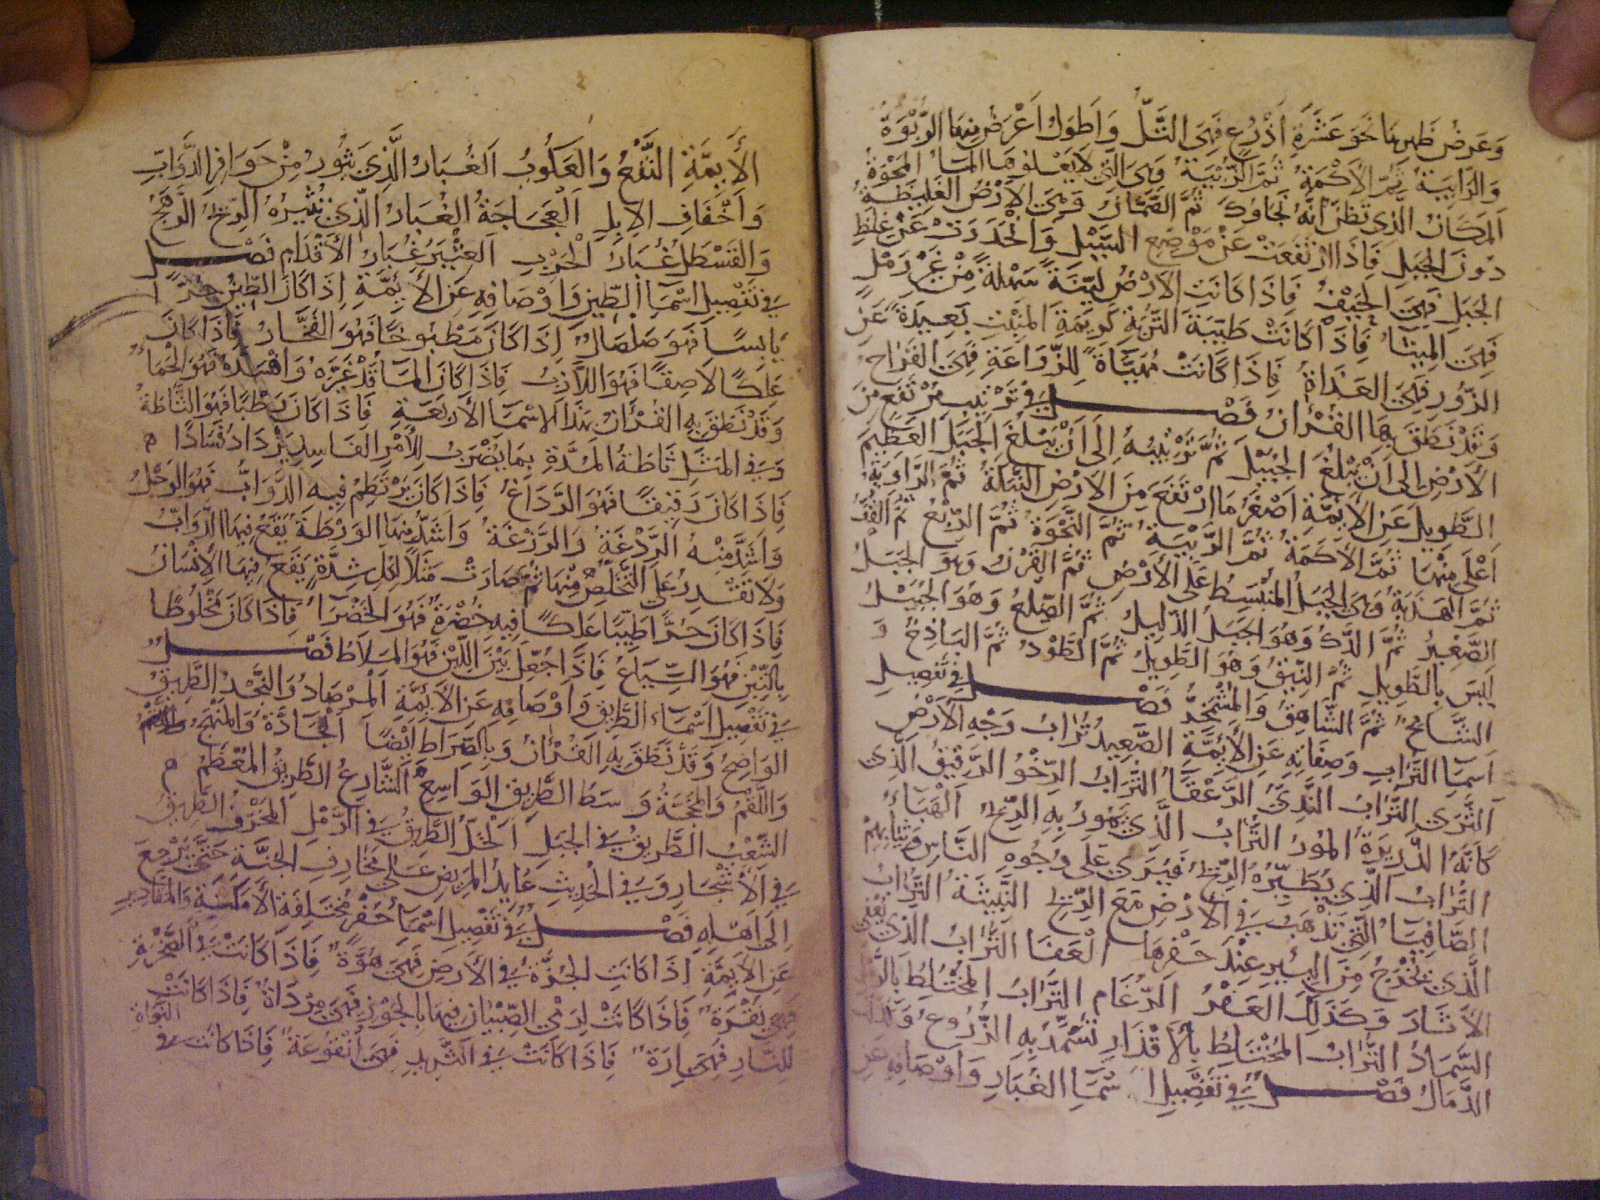 وَعَرْضُ ظَهْرِهَا نَحْوَ عَشَرَةِ أَذْرُعٍ فَهِىَ التَّلُّ وَأَطْوَلُ أَعْرَضُ مِنْهَا الرَّبْوَةُ
وَالرَّابِيَةُ ثُمَّ الأَكَمَةُ ثُمَّ الزُّبْيَةُ وَهِىَ الَّتِى لَا يَعْلُوهَا الْمَاءُ النَّجْوَةُ
المَكَانُ الَّذِى تَظُنُّ أَنَّهُ نَجَاؤُكَ ثُمَّ الصَّمَّانُ وَهِىَ الأَرْضُ الغَلِيظَةُ
دُونَ الجَبَلِ فَإِذَا ارْتَفَعَتْ عَنْ مَوْضِعِ السَّيْلِ وَانْحَدَرَتْ عَنْ غِلَظِ
الجَبَلِ فَهِىَ الخَيْفُ فَإِذَا كَانَتِ الأَرْضُ لَيِّنَةً سَهْلَةً مِنْ غَيْرِ رَمْلٍ
فَهِىَ المَيْثَاءُ فَإِذَا كَانَتْ طَيِّبَةَ التُّرْبَةِ كَرِيمَةَ المَنْبِتِ بَعِيدَةً عَنِ
النُّزُورِ فَهِىَ العَذَاةُ فَإِذَا كَانَتْ مُهَيَّأَةً لِلزِّرَاعَةِ فَهِىَ القَرَاحُ
وَقَدْ نَطَقَ بِهَا القُرْآنُ فَصْـــــلٌ فِى تَرْتِيبِ مَا ارْتَفَعَ مِنَ
الأَرْضِ إِلَى أَنْ يَبْلُغَ الجُبَيْلَ ثُمَّ تَرْتِيبُهُ إِلَى أَنْ يَبْلُغَ الجَبَلَ العَظِيمَ
الطَّوِيلَ عَنِ الأَئِمَّةِ أَصْغَرُ مَا ارْتَفَعَ مِنَ الأَرْضِ النَّبَكَةُ ثُمَّ الرَّابِيَةُ
أَعْلَى مِنْهَا ثُمَّ الأَكَمَةُ ثُمَّ الزُّبْيَةُ ثُمَّ النَّجْوَةُ ثُمَّ الرِّيعُ ثُمَّ القُفُّ
ثُمَّ الهَضْبَةُ وَهِىَ الجَبَلُ المُنْبَسِطُ عَلَى الأَرْضِ ثُمَّ القَرْنُ وَهُوَ الجَبَلُ
الصَّغِيرُ ثُمَّ الدَّكُّ وَهُوَ الجَبَلُ الذَّلِيلُ ثُمَّ الضِّلَعُ وَهُوَ الجُبَيْلُ
لَيْسَ بِالطَّوِيلِ ثُمَّ النِّيقُ وَهُوَ الطَّوِيلُ ثُمَّ الطَّوْدُ ثُمَّ البَاذِخُ وَ
الشَّامِخُ ثُمَّ الشَّاهِقُ وَالمُشْمَخِرُّ فَصْـــــلٌ فِى تَفْصِيلِ
أَسْمَاءِ التُّرَابِ وَصِفَاتِهِ عَنِ الأَئِمَّةِ الصَّعِيدُ تُرَابُ وَجْهِ الأَرْضِ
الثَّرَى التُّرَابُ النَّدِىُّ الدَّعْفَاءُ التُّرَابُ الرِّخْوُ الرَّقِيقُ الَّذِى
كَأَنَّهُ الذَّرِيرَةُ المُورُ التُّرَابُ الَّذِى تَمُورُ بِهِ الرِّيحُ الهَبَاءُ
التُّرَابُ الَّذِى يُطَيِّرُهُ الرِّيحُ فَيُرَى عَلَى وُجُوهِ النَّاسِ وَثِيَابِهِمْ
الصَّافِيَاءُ الَّتِى تَذْهَبُ فِى الأَرْضِ مَعَ الرِّيحِ النَّبِيثَةُ التُّرَابُ
الَّذِى يَخْرُجُ مِنَ البِئْرِ عِنْدَ حَفْرِهَا العَفَاءُ التُّرَابُ الَّذِى يُعَفِّى
الآثَارَ وَكَذَلِكَ العَفْرُ الرَّغَامُ التُّرَابُ المُخْتَلِطُ بِالرَّمْلِ
السَّمَادُ التُّرَابُ المُخْتَلِطُ بِالأَقْذَارِ تُسَمَّدُ بِهِ الزُّرُوعُ وَكَذَلِكَ
الدَّمَالُ فَصْـــــلٌ فِى تَفْصِيلِ أَسْمَاءِ الغُبَارِ وَأَوْصَافِهِ عَنِ
الأَئِمَّةِ النَّقْعُ وَالعَكُوبُ الغُبَارُ الَّذِى يَثُورُ مِنْ حَوَافِرِ الدَّوَابِّ
وَأَخْفَافِ الإِبِلِ العَجَاجَةُ الغُبَارُ الَّذِى تُثِيرُهُ الرِّيحُ الرَّهَجُ
وَالقَسْطَلُ غُبَارُ الحَرْبِ العِثْيَرُ غُبَارُ الأَقْدَامِ فَصْـــــلٌ
فِى تَفْصِيلِ أَسْمَاءِ الطِّينِ وَأَوْصَافِهِ عَنِ الأَئِمَّةِ إِذَا كَانَ الطِّينُ حُرًّا
يَابِسًا فَهُوَ صَلْصَالٌ إِذَا كَانَ مَطْبُوخًا فَهُوَ الفَخَّارُ فَإِذَا كَانَ
عَلِكًا لَاصِقًا فَهُوَ اللَّازِبُ فَإِذَا كَانَ المَاءُ قَدْ غَيَّرَهُ وَأَفْسَدَهُ فَهُوَ الحَمَأُ
وَقَدْ نَطَقَ بِهِ القُرْآنُ بِهَذَا الأَسْمَاءِ الأَرْبَعَةِ فَإِذَا كَانَ رَطْبًا فَهُوَ الثَّأْطَةُ
وَفِى المَثَلِ ثَأْطَةٌ مُدَّتْ بِمَاءٍ يُضْرَبُ لِلأَمْرِ الفَاسِدِ يَزْدَادُ فَسَادًا
فَإِذَا كَانَ رَقِيقًا فَهُوَ الرَّدَاغُ فَإِذَا كَانَ تَرْتَطِمُ فِيهِ الدَّوَابُّ فَهُوَ الوَحَلُ
وَأَشَدُّ مِنْهُ الرَّدْغَةُ وَالرَّزَغَةُ وَأَشَدُّ مِنْهَا الوَرْطَةُ يَقَعُ فِيهَا الدَّوَابُّ
وَلَا تَقْدِرُ عَلَى التَّخَلُّصِ مِنْهَا ثُمَّ صَارَتْ مَثَلًا لِكُلِّ شِدَّةٍ يَقَعُ فِيهَا الإِنْسَانُ
فَإِذَا كَانَ حُرًّا طَيِّبًا عَلِكًا فِيهِ خُضْرَةٌ فَهُوَ الخَضْرَاءُ فَإِذَا كَانَ مَخْلُوطًا
بِالتِّبْنِ فَهُوَ السِّيَاعُ فَإِذَا جُعِلَ بَيْنَ اللَّبِنِ فَهُوَ المِلَاطُ فَصْـــــلٌ
فِى تَفْصِيلِ أَسْمَاءِ الطَّرِيقِ وَأَوْصَافِهِ عَنِ الأَئِمَّةِ المِرْصَادُ وَالنَّجْدُ الطَّرِيقُ
الوَاضِحُ وَقَدْ نَطَقَ بِهِ القُرْآنُ وَبِالصِّرَاطِ أَيْضًا الجَادَّةُ وَالمَنْهَجُ
وَاللَّقَمُ وَالمَحَجَّةُ وَسَطُ الطَّرِيقِ الوَاسِعِ الشَّارِعُ الطَّرِيقُ المُعْظَمُ
الشِّعْبُ الطَّرِيقُ فِى الجَبَلِ الخَلُّ الطَّرِيقُ فِى الرَّمْلِ المَخْرَفُ الطَّرِيقُ
فِى الأَشْجَارِ وَفِى الحَدِيثِ عَايِدُ المَرِيضِ عَلَى مَخَارِفِ الجَنَّةِ حَتَّى يَرْجِعَ
إِلَى أَهْلِهِ فَصْـــــلٌ فِى تَفْصِيلِ أَسْمَاءِ حُفَرٍ مُخْتَلِفَةِ الأَمْكِنَةِ وَالمَقَادِيرِ
عَنِ الأَئِمَّةِ إِذَا كَانَتِ الحُفْرَةُ فِى الأَرْضِ فَهِىَ هُوَّةٌ فَإِذَا كَانَتْ فِى الصَّخْرَةِ
فَهِىَ نُقْرَةٌ فَإِذَا كَانَتْ لِرَمْىِ الصِّبْيَانِ فِيهَا بِالجَوْزِ فَهِىَ مِزْدَاةٌ فَإِذَا كَانَتْ
لِلنَّارِ فَهِىَ إِرَةٌ فَإِذَا كَانَتْ فِى الثَّرِيدِ فَهِىَ أُنْقُوعَةٌ فَإِذَا كَانَتْ فِى
النَّوَاةِ